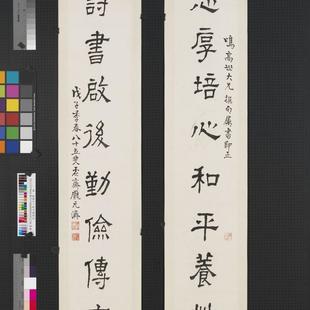 厚培心和平養
鳴高世大兄 撰句屬書即正
詩書啟後勤儉傳
戊子季春八十五叟虛齋龐元濟